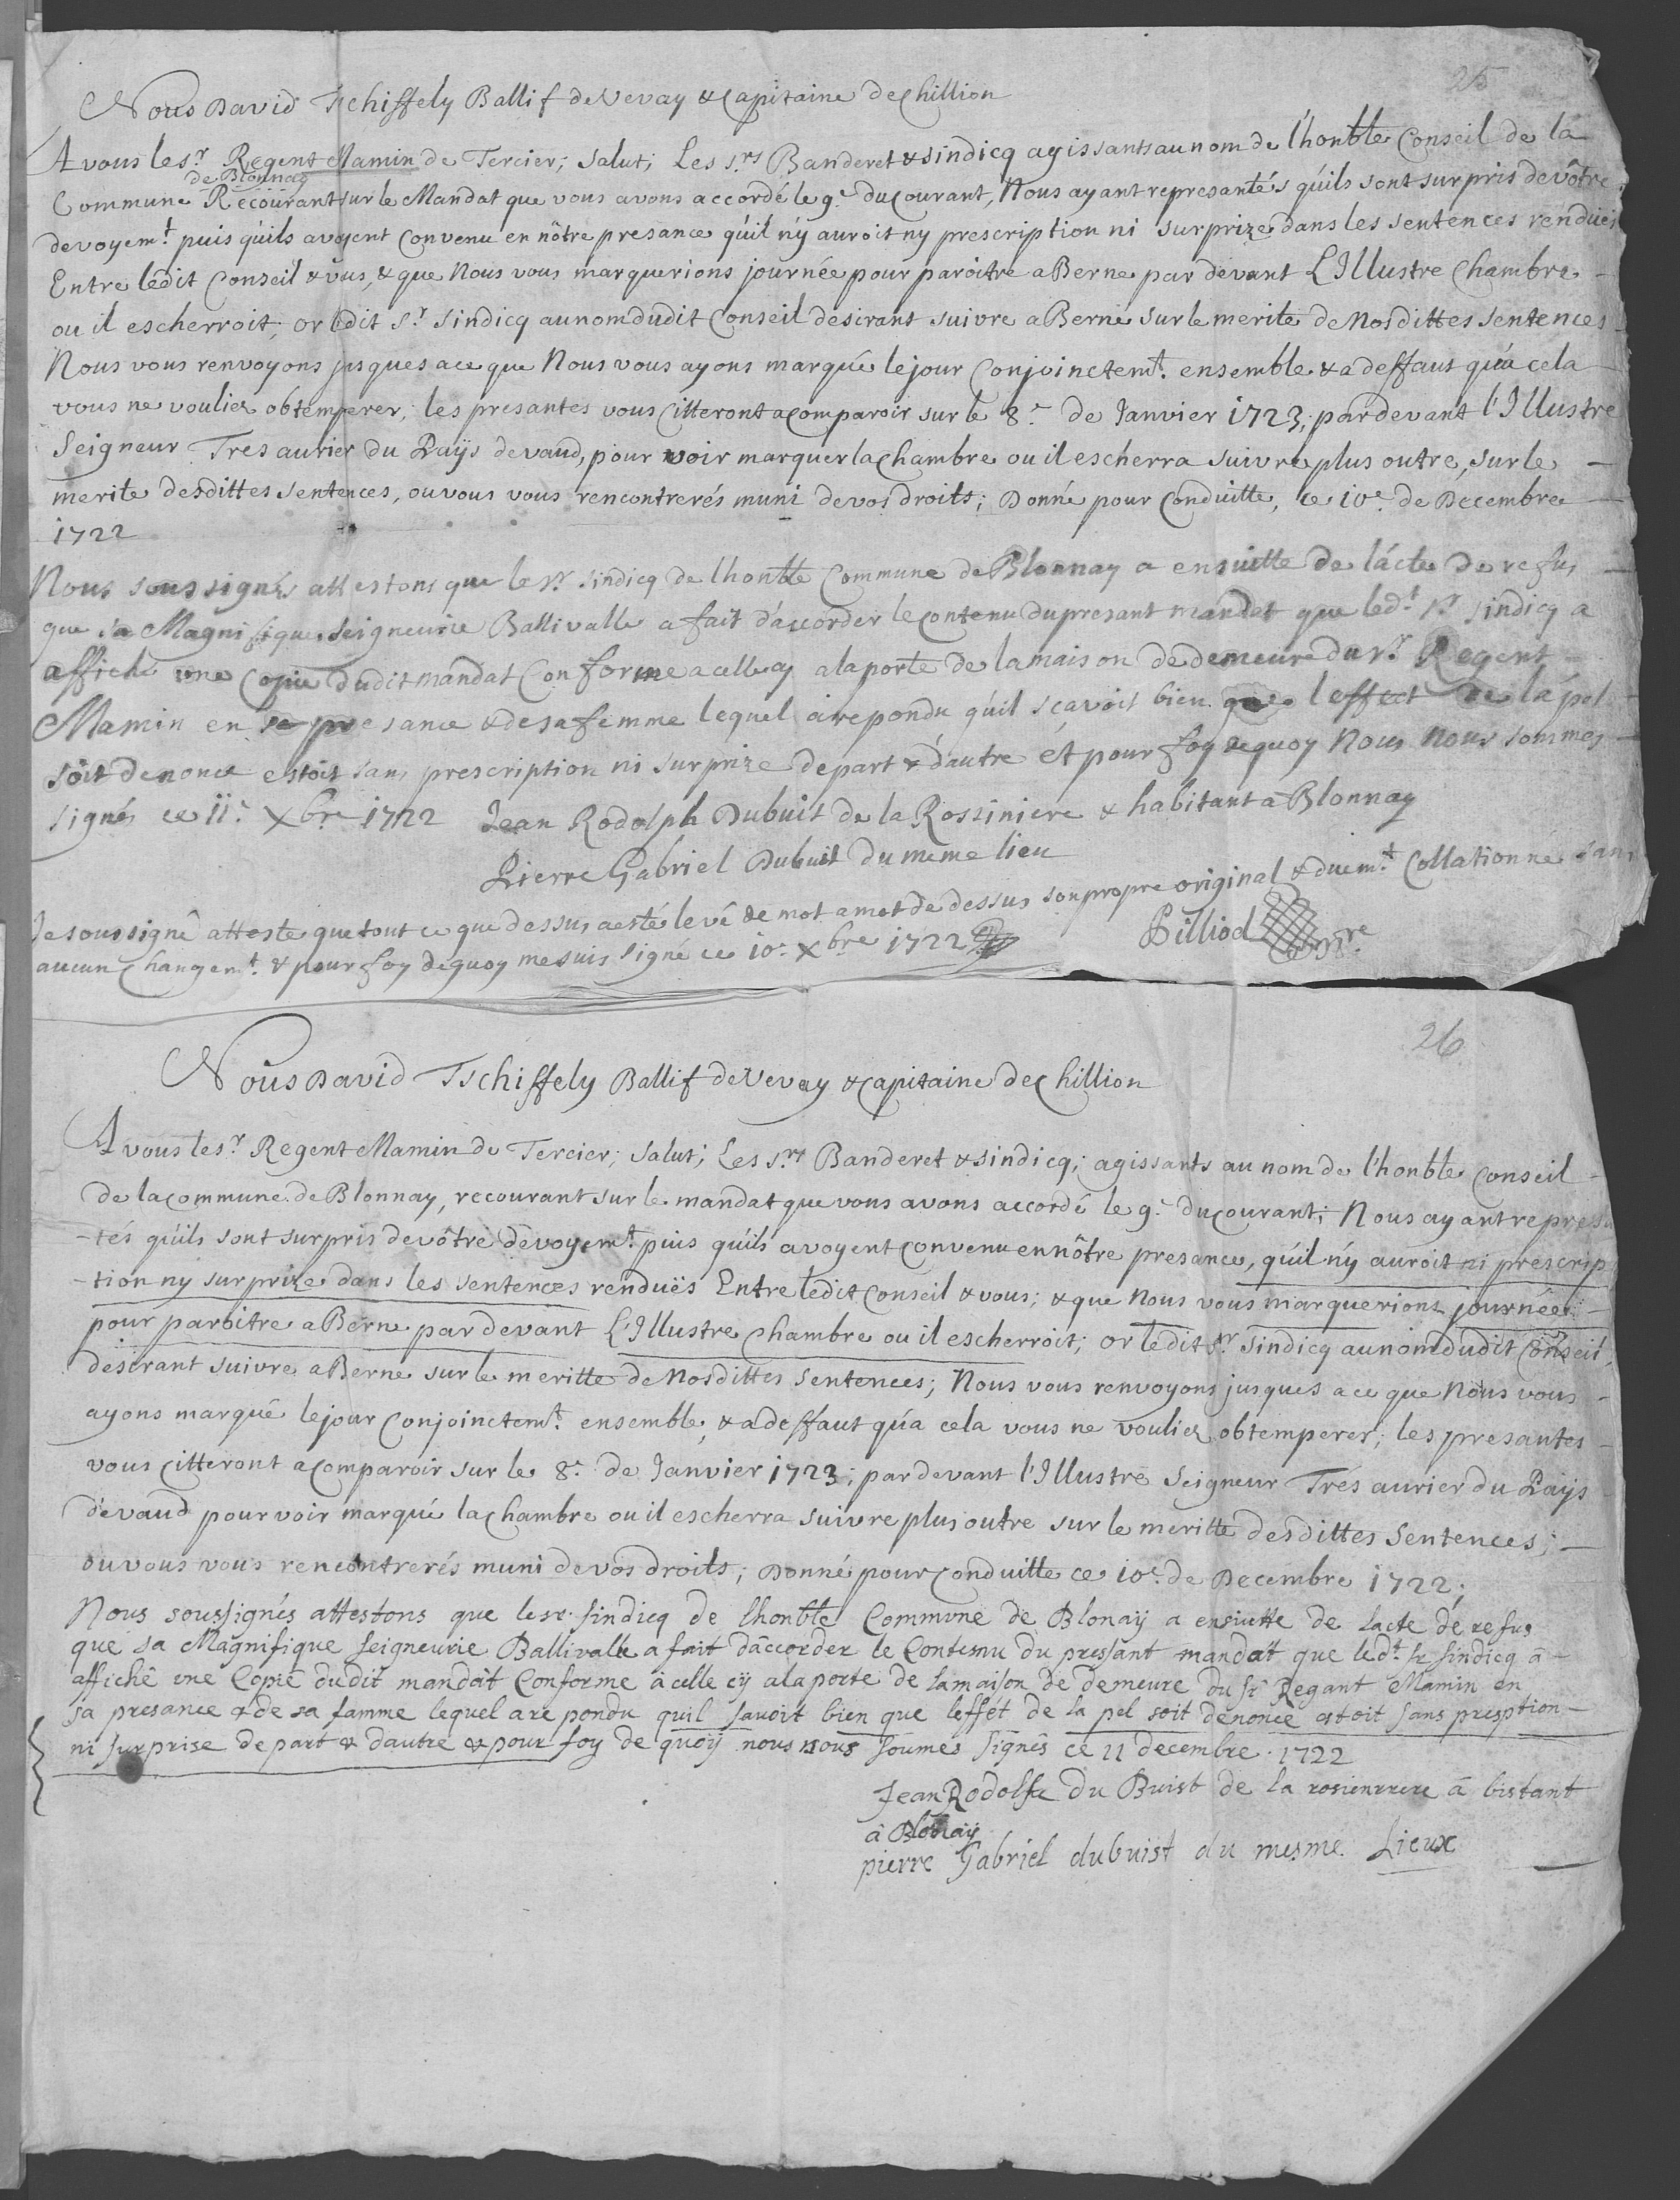 25
Nous David Tschiffely Ballif de Vevay & Capitaine de Chillion
A vous le s.r Regent Mamin de Tercier; salut; Les s.rs Banderet & sindicq agissants au nom de l'honble Conseil de la
de Blonnay
Commune Recourant sur le Mandat que vous avons accordé le 9.e du Courant, Nous ayant represantés qu'ils sont surpris de vôtre
devoyem.t puis qu'ils avoyent Convenu en nôtre presance qu'il n'y auroit ny prescription ni surprize dans les sentences renduës
Entre ledit Conseil & vous, & que Nous vous marquerions journée pour paroitre a Berne par devant L'Illustre Chambre –
ou il escherroit; or ledit s.r sindicq au nom dudit Conseil desirant suivre a Berne sur le merite de Nosdittes sentences –
Nous vous renvoyons jusques a ce que Nous vous ayons marqué le jour Conjoinctem.t ensemble & a deffaut qu'a cela –
vous ne vouliez obtemperer; les presantes vous Citteront a Comparoir sur le 8.e de Janvier 1723, par devant l'Illustre
Seigneur Tresaurier du Païs de vaud, pour voir marquer la Chambre ou il escherra suivre plus outre, sur le –
merite desdittes sentences, ou vous vous rencontrerés muni de vos droits; Donné pour Conduitte, ce 10.e de Decembre –
1722
Nous soussignés attestons que le s.r sindicq de lhonble Commune de Blonnay a ensuitte de l'acte de refus –
que sa Magnifique Seigneurie Ballivalle a fait d'accorder le contenu du presant mandat que led.t s.r sindicq a
affiché une Copie dudit mandat Conforme a celle cy a la porte de la maison de demeure du s.r Regent –
Mamin en sa presance & de sa femme lequel a repondu qu'il scavoit bien que l'effect de l'apel –
soit denonce estoit sans prescription ni surprize de part & d'autre et pour foy de quoy Nous Nous sommes –
signés ce 11.e Xbre 1722 Jean Rodolph Dubuis de la Rossiniere & habitant a Blonnay
Pierre Gabriel Dubuit du meme lieu
Je soussigné atteste que tout ce que dessus a esté levé de mot a mot de dessus son propre original & duem.t Collationné sans
aucun Changem.t & pour foy de quoy me suis signé ce 10.e Xbre 1722 Pilliod
26
Nous David Tschiffely Ballif de Vevay & Capitaine de Chillion
A vous le s.r Regent Mamin de Tercier; salut; Les s.rs Banderet & sindicq; agissants au nom de l'honble Conseil –
de la Commune de Blonnay, recourant sur le mandat que vous avons accordé le 9.e du Courant; Nous ayant represen
-tés qu'ils sont surpris de vôtre devoyem.t puis qu'ils avoyent Convenu en nôtre presance, qu'il n'y auroit ni prescrip
-tion ny surprize dans les sentences renduës Entre ledit Conseil & vous; & que Nous vous marquerions journée –
pour paroitre a Berne par devant L'Illustre Chambre ou il escherroit; or ledit s.r sindicq au nom dudit Conseil,
desirant suivre a Berne sur le meritte de Nosdittes sentences; Nous vous renvoyons jusques a ce que Nous vous –
ayons marqué le jour Conjoinctem.t ensemble, & a deffaut qu'a cela vous ne vouliez obtemperer; les presantes –
vous Citteront a Comparoir sur le 8.e de Janvier 1723; par devant l'Illustre Seigneur Tresaurier du Païs –
de vaud pour voir marqué la Chambre ou il escherra suivre plus outre sur le meritte desdittes Sentences; –
ou vous vous rencontrerés muni de vos droits; Donné pour Conduitte ce 10.e de Decembre 1722;
Nous soussignés attestons que le sr. sindicq de lhonble Commune de Blonaÿ a ensuitte de lacte de refus
que sa Magnifique seigneurie Ballivalle a fait d'accorder le Contenu du pressant mandat que led.t sr sindicq â –
affichê une Copie dudit mandât Conforme â celle cÿ a la porte de la maison de demeure du sr Regant Mamin en
sa presance & de sa famme lequel a repondu quil savoit bien que leffét de la pel soit denonce estoit sans presption –
ni surprise de part & dautre & pour foy de quoÿ nous nous soumes signês ce 11 decembre . 1722
Jean Rodolfe du Buist de la rosienrere â bistant
â Blonaÿ
pierre Gabriel dubuist du mesme Lieux